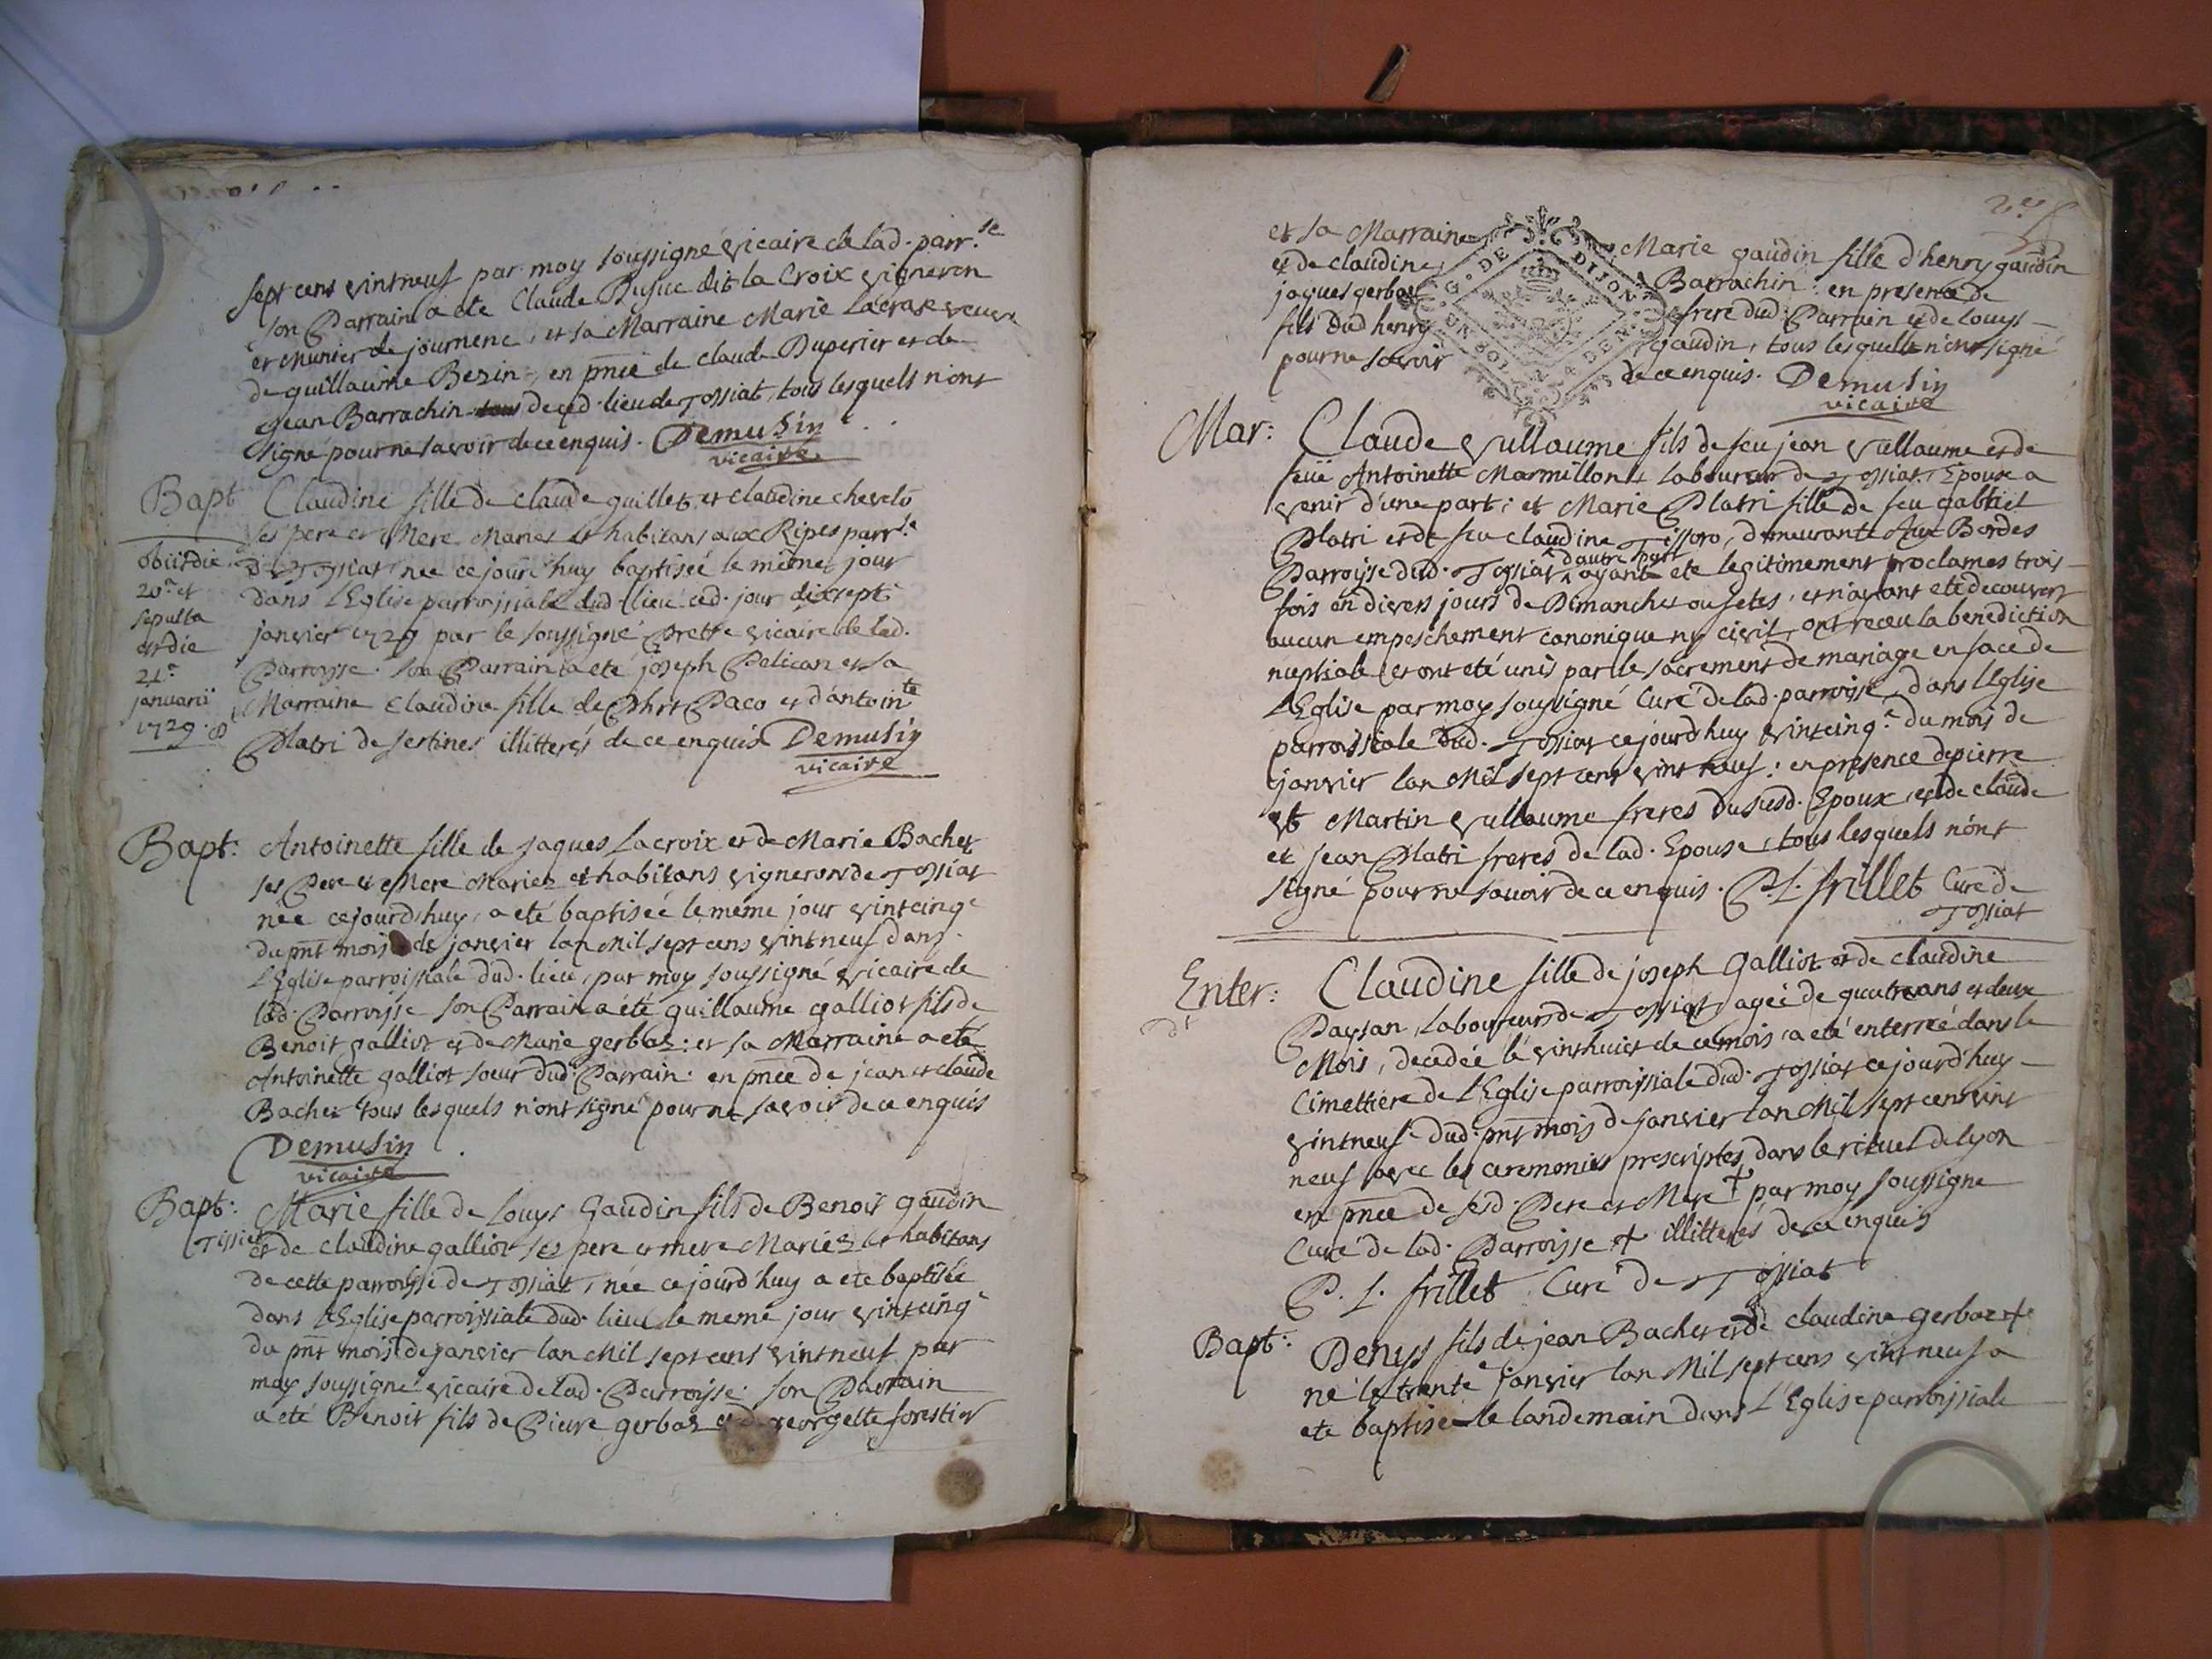 sept cens vintneuf par moy soussigné vicaire de lad. parr.se
son Parrain a ete Claude Dufuc dit la Croix vigneron
et Munier de journene, et sa Marraine Marie Lacrase veuve
de guillaume Bezin, en pnce de claude Duperier et de
Jean Barrachin de ced. lieu de Tossiat, tous lesquels n'ont
signé pour ne savoir de ce enquis. Demusin
vicaire
Bapt Claudine fille de claude guillet et claudine chevelu
ses pere et Mere Maries et habitans aux Ripes parr.se
de Tossiat née ce jourd'huy baptisée le même jour
dans l'Eglise parroissiale dud. lieu ced. jour dixsept
janvier 1729 par le soussigné Pretre vicaire de lad.
Parroisse. son Parrain a eté joseph Pelican et sa
Marraine Claudine fille de Phrt Paco et d'antointe
Platri de sertines illitterés de ce enquis Demusin
vicaire
obiit die
20a et
sepulta
est die
21a
januarii
1729.
Bapt: Antoinette fille de jaques Lacroix et de Marie Bachet
ses Pere et Mere Mariez et habitans vigneron de Tossiat
née cejourd'huy, a eté baptisée le même jour vintcinqe
du pnt mois de janvier lan Mil sept cens vintneuf dans
l'Eglise parroissiale dud. lieu, par moy soussigné vicaire de
lad. Parroisse son Parrain a été guillaume galliot fils de
Benoit galliot et de Marie gerbaz: et sa Marraine a eté
Antoinette galliot soeur dud. Parrain. en pnce de jean et claude
Bachet tous lesquels n'ont signé pour ne savoir de ce enquis
Demusin
vicaire
Bapt: Marie fille de Louys Gaudin fils de Benoit gaudin
Tissier et de claudine galliot ses pere et mere Mariéz et habitans
de cette parroisse de Tossiat, née cejourd'huy a ete baptisée
dans l'Eglise parroissiale dud. lieu le meme jour vintcinqe
du pnt mois de janvier lan Mil sept cens vintneuf par
moy soussigné vicaire de lad. Parroisse. son Parrain
a eté Benoit fils de Pierre gerbaz et de georgette forestier
et sa Marraine Marie gaudin fille d'henry gaudin
et de claudine Barrachin: en presence de
jaques gerbaz frere dud. Parrain et de Louys
fils dud henry gaudin, tous lesquels n'ont signé
pour ne savoir de ce enquis. Demusin
vicaire
G. DE DIJON
Mar: Claude Vullaume fils de feu jean Vullaume et de
feüe Antoinette Marmillon Laboureur de Tossiat Epoux a
venir d'une part; et Marie Platri fille de feu gabriel
Platri et de feu claudine Tissoro, demeurante Aux Bordes
d'autre part
Parroisse dud. Tossiat, ayant ete legitimement proclames trois
fois en divers jours de Dimanches ou fetes, et n'ayant eté decouvert
aucun empeschement canonique ny civil, ont receu la benediction
nuptiale et ont eté unis par le sacrement de mariage en face de
L'Eglise par moy soussigné Curé de lad. parroisse, dans l'Eglise
parroissiale dud. Tossiat cejourd'huy vintcinqe du mois de
janvier lan Mil sept cent vint neuf: en presence de pierre
et Martin Vullaume freres du susd. Epoux, et de claude
et jean Platri freres de lad. Epouse, tous lesquels n'ont
signé pour ne savoir de ce enquis. P. L. frillet Curé de
Tossiat
Enter: Claudine fille de joseph Galliot et de claudine
Paysan, Laboureurs de Tossiat, agée de quatre ans et deux
Mois, decedée le vinthuict de ce mois a eté enterrée dans le
Cimettiere de l'Eglise parroissiale dud. Tossiat cejourd'huy
vintneufe dud. pnt mois de janvier lan Mil sept cent vint
neuf avec les ceremonies prescriptes dans le rituel de Lyon
en pnce de sesd. Pere et Mere + par moy soussigne
Curé de lad. Parroisse + illitterés de ce enquis
P. L. frillet Curé de Tossiat
Bapt: Denys fils de jean Bachet et de claudine gerbaz
né le trente janvier lan Mil sept cens vint neuf a
ete baptisé le landemain dans l'Eglise parroissiale